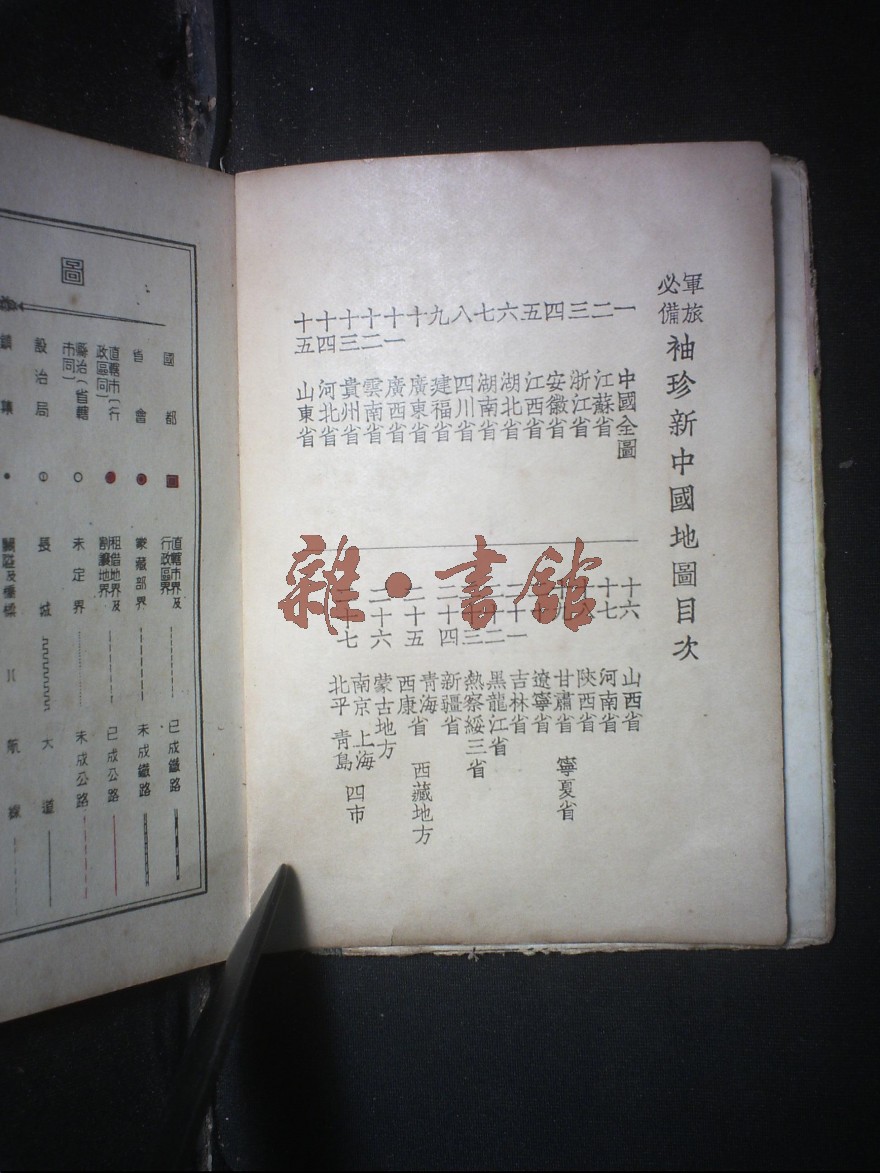 軍旅
必備
袖珍新中國地圖目次
一 中國全圖
二 江蘇省
三 浙江省
四 安徽省
五 江西省
六 湖北省
七 湖南省
八 四川省
九 建福省
十 廣東省
十一 廣西省
十二 雲南省
十三 貴州省
十四 河北省
十五 山東省
十六 山西省
十七 河南省
陝西省
甘肅省 寧夏省
遼寧省
吉林省
黑龍江省
熱察綏三省
二十四 新疆省
二十五 青海 西康省 西藏地方
二十六 蒙古地方
南京 上海
北平 青島 四市
圖
國都
直轄市界及
行政區界
已成鐵路
省會
蒙藏部界
未成鐵路
直轄市(行
政區同)
租借地界及
割讓地界
已成公路
縣治(省轄
市同)
未定界
未成公路
設治局
長城
大道
航線
雜·書館